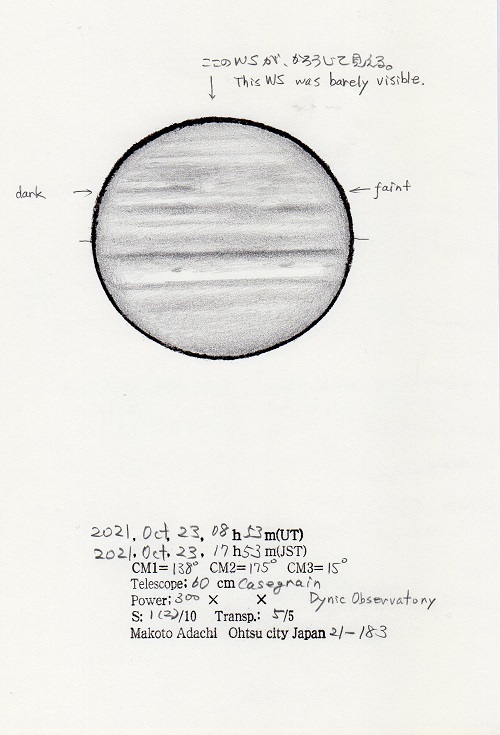 ここのWSが、かろうじて見える。
This WS was barely visible.
dark
faint
2021, Oct, 23, 08h53m(UT)
2021, Oct, 23, 17h53m(JST)
CM1=138° CM2=175° CM3=15°
Telescope: 60 cm Casegrain
Power: 300 × × Dynic Observatony
S: 1(2)/10 Transp.: 5/5
Makoto Adachi Ohtsu city Japan 21-183